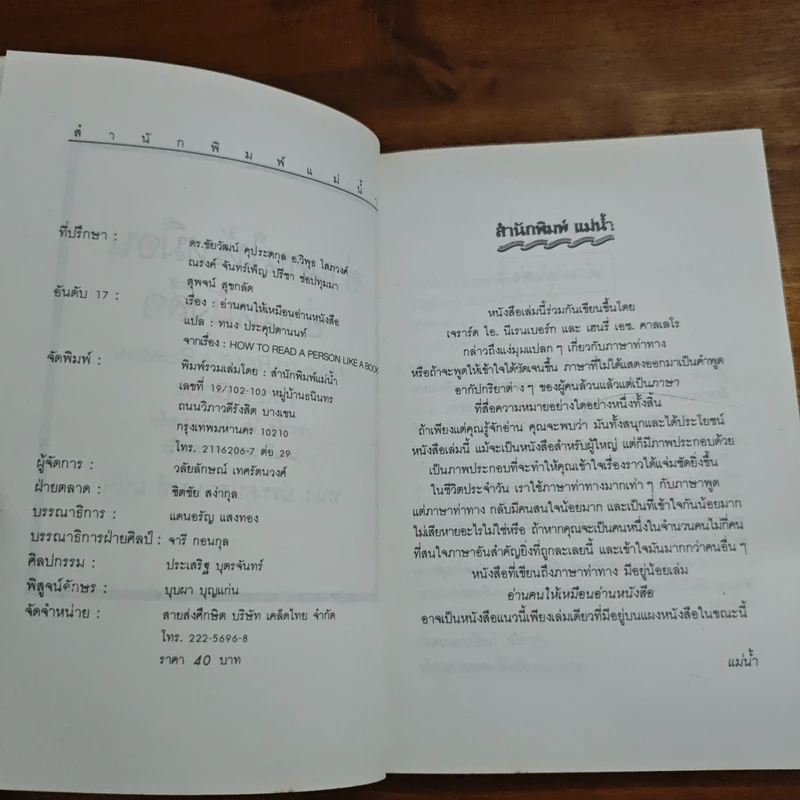 สำนักพิมพ์แม่น้ำ
ที่ปรึกษา : ดร.ชัยวัฒน์ คุประตกุล อ.วิพุธ โสภวงศ์
ณรงค์ จันทร์เพ็ญ ปรีชา ช่อปทุมมา
สุพจน์ สุขกลัด
อันดับ 17 : เรื่อง : อ่านคนให้เหมือนอ่านหนังสือ
แปล : ทนง ประคุปตานนท์
จากเรื่อง : HOW TO READ A PERSON LIKE A BOOK
จัดพิมพ์ : พิมพ์รวมเล่มโดย : สำนักพิมพ์แม่น้ำ
เลขที่ 19/102-103 หมู่บ้านธนินทร
ถนนวิภาวดีรังสิต บางเขน
กรุงเทพมหานคร 10210
โทร. 2116206-7 ต่อ 29
ผู้จัดการ : วลัยลักษณ์ เทศรัตนวงศ์
ฝ่ายตลาด : ชิตชัย สง่ากุล
บรรณาธิการ : แดนอรัญ แสงทอง
บรรณาธิการฝ่ายศิลป์ : จารี กอนกุล
ศิลปกรรม : ประเสริฐ บุตรจันทร์
พิสูจน์อักษร : บุบผา บุญแก่น
จัดจำหน่าย : สายส่งศึกษิต บริษัท เคล็ดไทย จำกัด
โทร. 222-5696-8
ราคา 40 บาท
สำนักพิมพ์ แม่น้ำ
หนังสือเล่มนี้ร่วมกันเขียนขึ้นโดย
เจราร์ด ไอ. นีเรนเบอร์ก และ เฮนรี่ เอช. คาลเลโร
กล่าวถึงแง่มุมแปลก ๆ เกี่ยวกับภาษาท่าทาง
หรือถ้าจะพูดให้เข้าใจได้ชัดเจนขึ้น ภาษาที่ไม่ได้แสดงออกมาเป็นคำพูด
อากัปกริยาต่าง ๆ ของผู้คนล้วนแล้วแต่เป็นภาษา
ที่สื่อความหมายอย่างใดอย่างหนึ่งทั้งสิ้น
ถ้าเพียงแต่คุณรู้จักอ่าน คุณจะพบว่า มันทั้งสนุกและได้ประโยชน์
หนังสือเล่มนี้ แม้จะเป็นหนังสือสำหรับผู้ใหญ่ แต่ก็มีภาพประกอบด้วย
เป็นภาพประกอบที่จะทำให้คุณเข้าใจเรื่องราวได้แจ่มชัดยิ่งขึ้น
ในชีวิตประจำวัน เราใช้ภาษาท่าทางมากเท่า ๆ กับภาษาพูด
แต่ภาษาท่าทาง กลับมีคนสนใจน้อยมาก และเป็นที่เข้าใจกันน้อยมาก
ไม่เสียหายอะไรไม่ใช่หรือ ถ้าหากคุณจะเป็นคนหนึ่งในจำนวนคนไม่กี่คน
ที่สนใจภาษาอันสำคัญยิ่งที่ถูกละเลยนี้ และเข้าใจมันมากกว่าคนอื่น ๆ
หนังสือที่เขียนถึงภาษาท่าทาง มีอยู่น้อยเล่ม
อ่านคนให้เหมือนอ่านหนังสือ
อาจเป็นหนังสือแนวนี้เพียงเล่มเดียวที่มีอยู่บนแผงหนังสือในขณะนี้
แม่น้ำ